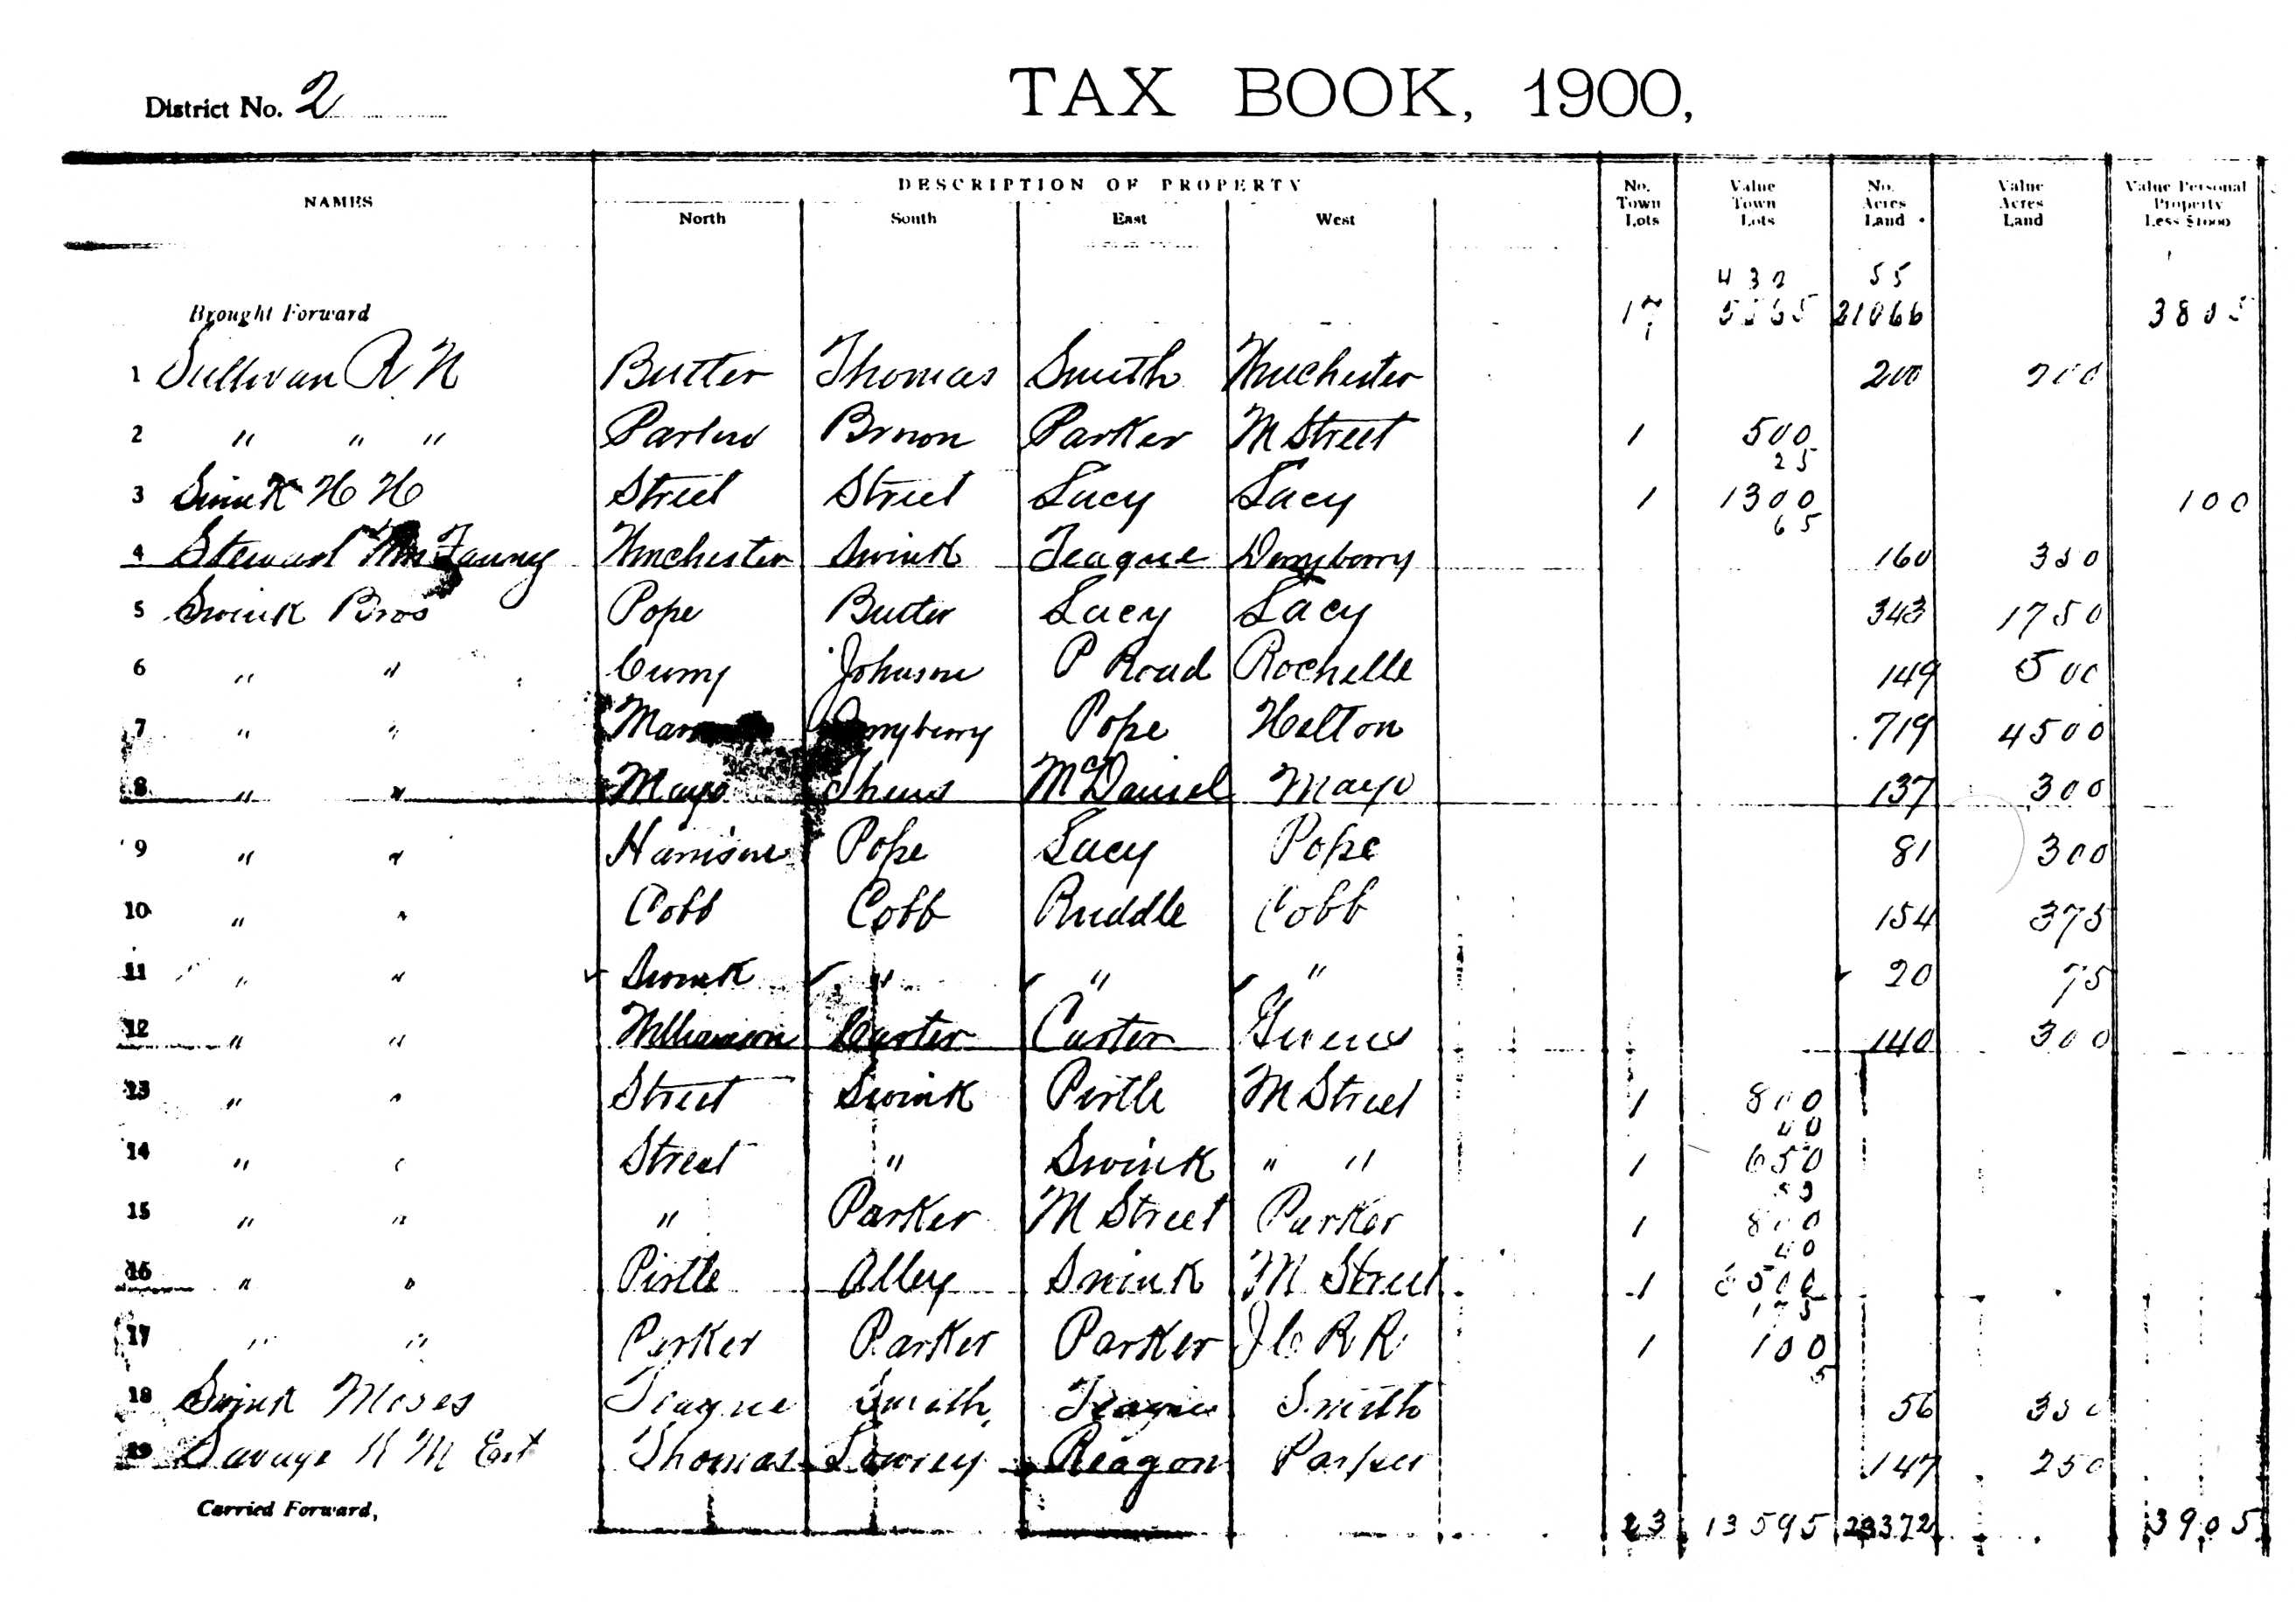 District No. 2
TAX BOOK, 1900,
NAMES
DESCRIPTION OF PROPERTY
North South East West
No. Town Lots
Value Town Lots
No. Acres Land
Value Acres Land
Value Personal Property Less $1000
432 55
Brought Forward 17 21066 3805
1 Sullivan R N Butler Thomas Smith Winchester 200 200
2 " " " Brown Parker M Street 1 500
25
3 Swink H H Street Street Lacy Lacy 1 1300 100
65
4 Stewart Mrs Fanny Winchester Swink Teague Derryberry 160 350
5 Swink Bros Pope Butler Lacy Lacy 343 1750
6 " " Curry Johnson P Road Rochelle 149 500
7 " " Pope Helton 719 4500
8 " " Mayo McDaniel Mayo 137 300
9 " " Harrison Pope Lacy Pope 81 300
10 " " Cobb Cobb Ruddle Cobb 154 375
11 " " Swink " " " 20 75
12 " " Williamson Carter Carter 140 300
13 " " Street Swink Pirtle M Street 1 800
40
14 " " Street " Swink " " 1 650
15 " " " Parker M Street Parker 1 800
40
16 " " Pirtle Alley Swink M Street 1 3500
175
17 " " Parker Parker Parker I C R R 1 100
5
18 Swink Moses Teague Smith Teague Smith 56 350
19 Savage K M Est Thomas Lowrey Reagon Parker 147 250
Carried Forward, 23 13595 23372 3905